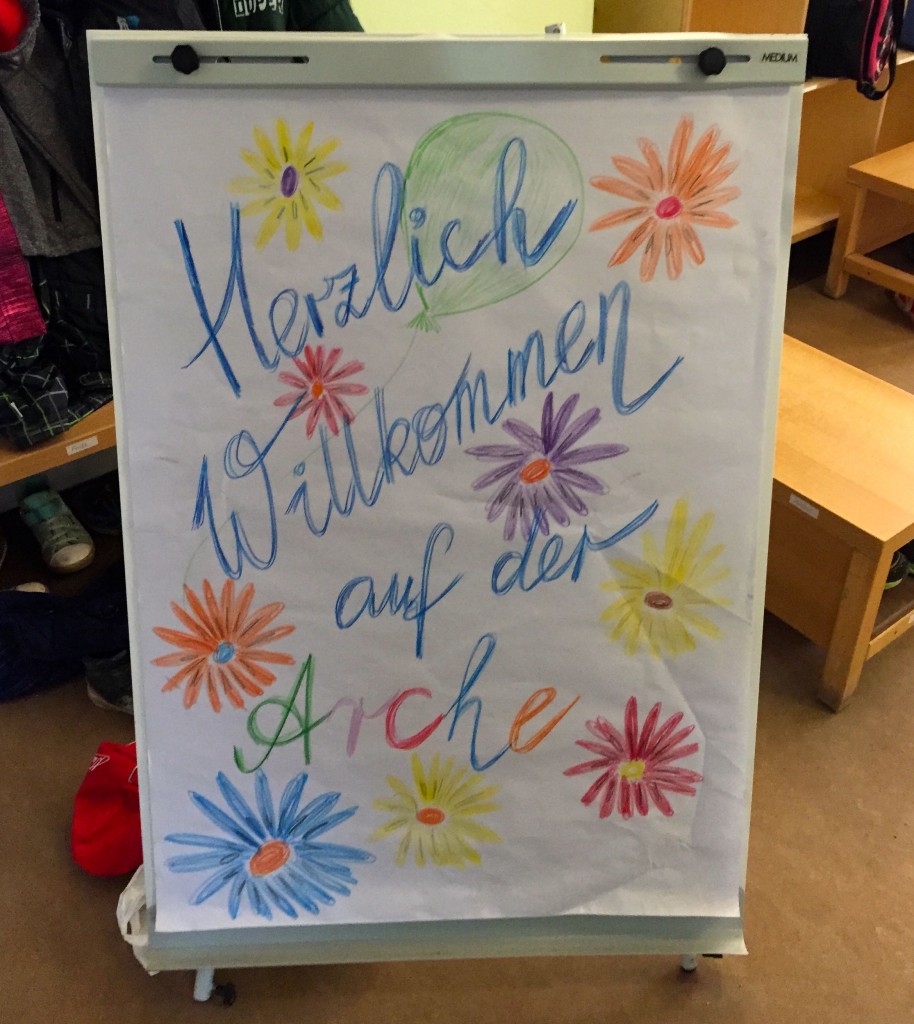 MEDIUM
Herzlich
Willkommen
auf der
Arche